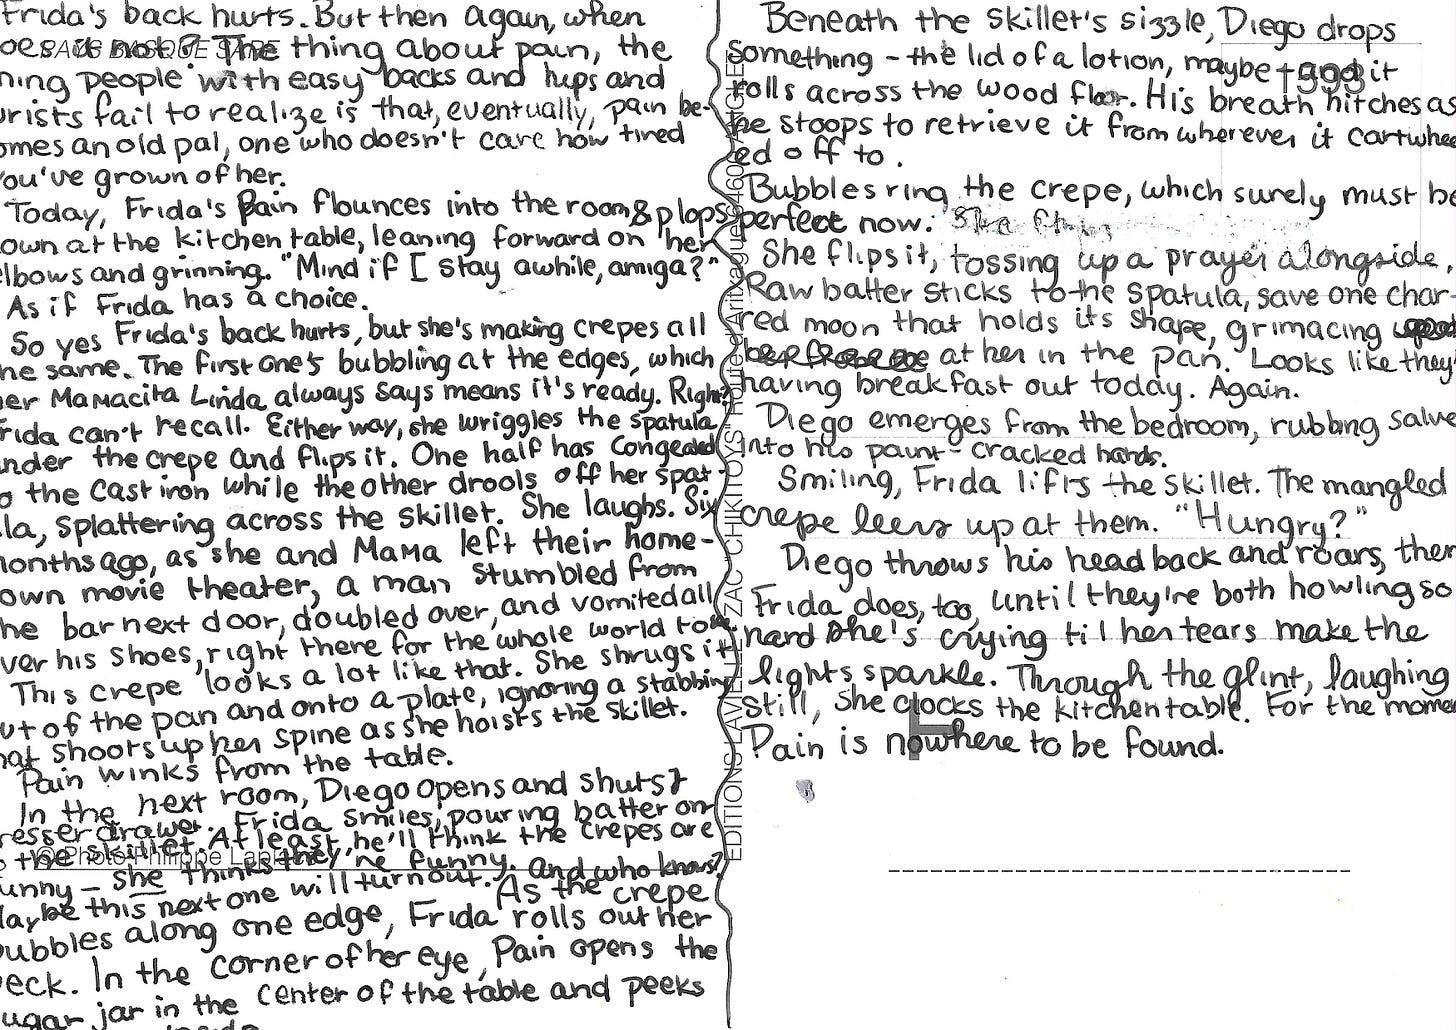 Frida's back hurts. But then again, when
oes it not? The thing about pain, the
ning people with easy backs and hips and
urists fail to realize is that, eventually, pain be-
omes an old pal, one who doesn't care how tired
you've grown of her.
Today, Frida's Pain flounces into the room & plops
own at the kitchen table, leaning forward on her
elbows and grinning. "Mind if I stay awhile, amiga?"
As if Frida has a choice.
So yes Frida's back hurts, but she's making crepes all
he same. The first one's bubbling at the edges, which
her Mamacita Linda always says means it's ready. Right?
Frida can't recall. Either way, she wriggles the spatula
nder the crepe and flips it. One half has congealed
o the cast iron while the other drools off her spat-
la, splattering across the skillet. She laughs. Six
onths ago, as she and Mama left their home-
own movie theater, a man stumbled from
he bar next door, doubled over, and vomited all
ver his shoes, right there for the whole world to
This crepe looks a lot like that. She shrugs it
ut of the pan and onto a plate, ignoring a stabbing
hat shoots up her spine as she hoists the skillet.
Pain winks from the table.
In the next room, Diego opens and shuts
resser drawer. Frida smiles, pouring batter on-
o the skillet. At least he'll think the crepes are
unny - she thinks they're funny. And who knows?
aybe this next one will turn out. As the crepe
bubbles along one edge, Frida rolls out her
eck. In the corner of her eye, Pain opens the
ugar jar in the center of the table and peeks
inside.
Beneath the skillet's sizzle, Diego drops
something - the lid of a lotion, maybe - and it
rolls across the wood floor. His breath hitches as
he stoops to retrieve it from wherever it cartwheel
ed off to.
Bubbles ring the crepe, which surely must be
perfect now.
She flips it, tossing up a prayer alongside.
Raw batter sticks to the spatula, save one char-
red moon that holds its shape, grimacing
at her in the pan. Looks like they'
having breakfast out today. Again.
Diego emerges from the bedroom, rubbing salve
into his paint-cracked hands.
Smiling, Frida lifts the skillet. The mangled
crepe leers up at them. "Hungry?"
Diego throws his head back and roars, then
Frida does, too, until they're both howling so
hard she's crying til her tears make the
lights sparkle. Through the glint, laughing
still, she clocks the kitchen table. For the momen
Pain is nowhere to be found.
1993
© Photo Philippe
EDITIONS LAVIELLE ZAC "CHIKITOYS" Route d'Arrixague 64600 ANGLET